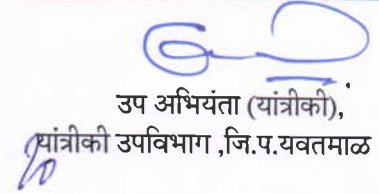 उप अभियंता (यांत्रीकी),
यांत्रीकी उपविभाग ,जि.प.यवतमाळ